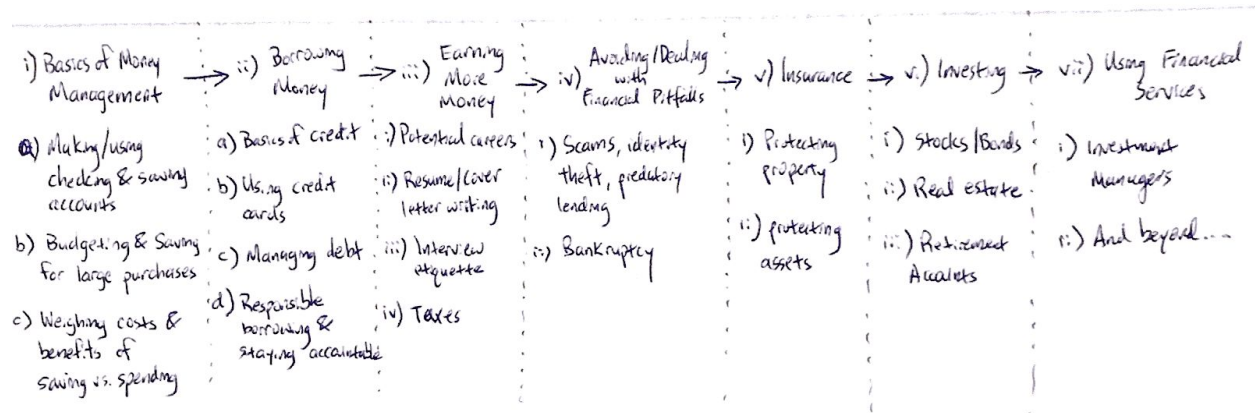 i) Basics of Money
Management
a) Making/using
checking & saving
accounts
b) Budgeting & Saving
for large purchases
c) Weighing costs &
benefits of
saving vs. spending
ii) Borrowing
Money
a) Basics of credit
b) Using credit
cards
c) Managing debt
d) Responsible
borrowing &
staying accountable
iii) Earning
More
Money
i) Potential careers
ii) Resume/Cover
letter writing
iii) Interview
etiquette
iv) Taxes
iv) Avoiding/Dealing
with
Financial Pitfalls
i) Scams, identity
theft, predatory
lending
ii) Bankruptcy
v) Insurance
i) Protecting
property
ii) protecting
assets
vi) Investing
i) Stocks/Bonds
ii) Real estate
iii) Retirement
Accounts
vii) Using Financial
Services
i) Investment
Managers
ii) And beyond....